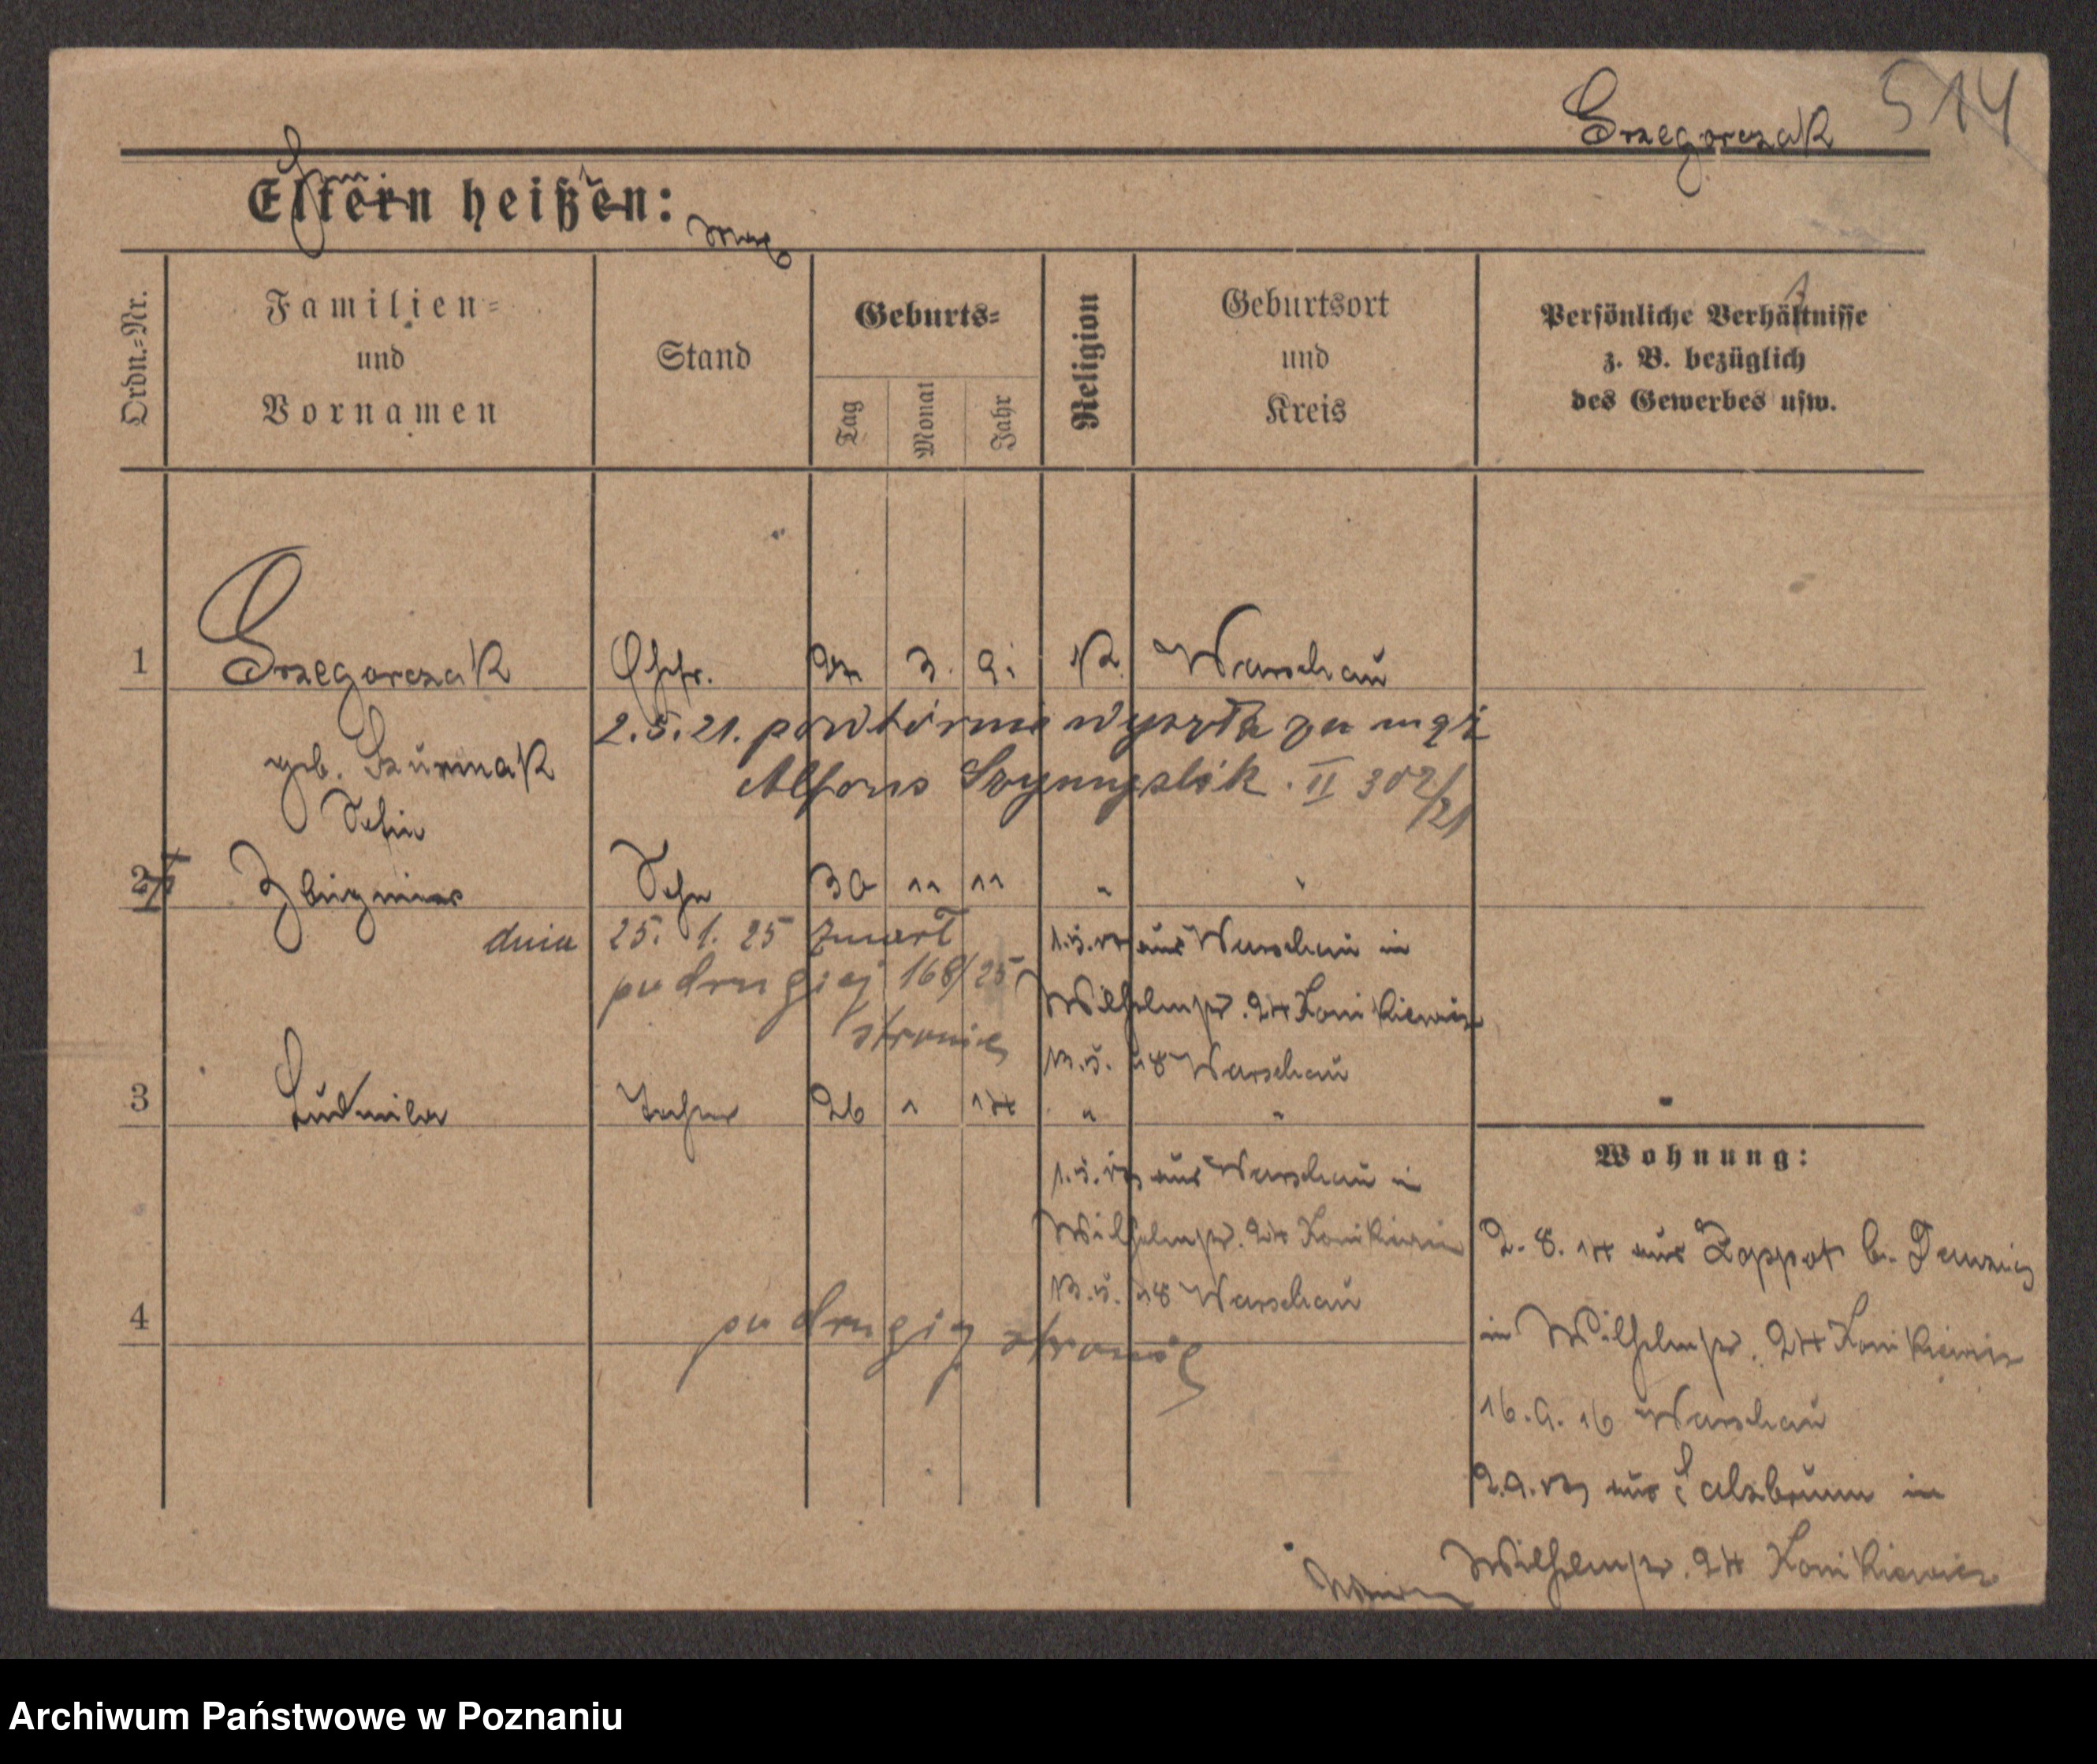 514
Grzegorczak
Eltern heißen:
Ordn.=Nr.
Familien=
und
Vornamen
Stand
Geburts=
Tag
Monat
Jahr
Religion
Geburtsort
und
Kreis
Persönliche Verhältnisse
z. B. bezüglich
des Gewerbes usw.
1 Grzegorczak Ehfr. 3. K. Warschau
2.5.21. powtórnie wyszła za mąż
geb.
Alfons II 302/21
2 Sohn 30 11 11 " "
dnia 25. 1. 25 zmarł
1.5. aus Warschau in
na drugiej 168/25
Wilhelmstr. 24 Konikiewicz
stronie
Warschau
3 Ludmila Tochter 26 1 14 " "
Wohnung:
1.5. aus Warschau in
Wilhelmstr. 24 Konikiewicz
2. 8. 14 aus Zoppot b. Danzig
Warschau
4
na drugiej stronie
in Wilhelmstr. 24 Konikiewicz
16. 9. 16 Warschau
2.9. aus Salzbrunn in
Wilhelmstr. 24 Konikiewicz
Archiwum Państwowe w Poznaniu